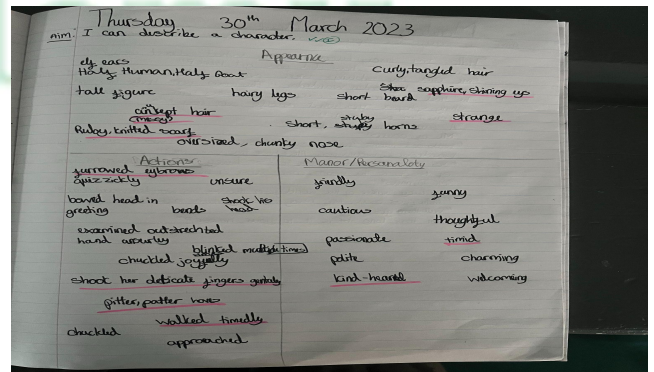 Thursday 30th March 2023
Aim: I can describe a character.
Appearnce
elf ears
Half Human, Half Goat
curly, tangled hair
tall figure hairy legs short beard sapphire, shining eyes
unkept hair
(messy)
short, stubby horns strange
Ruby, knitted scarf
oversized, chunky nose
Actions
furrowed eybrows
quizzickly unsure
bowed head in
greeting bends shook his
head
examined outstrechted
hand
blinked multiple times
chuckled joyfully
shook her delicate fingers
pitter, patter hooves
walked timedly
chuckled
approached
Manor/Personaloty
friendly
funny
cautious
thoughtful
passionate timid
polite charming
kind-hearted welcoming